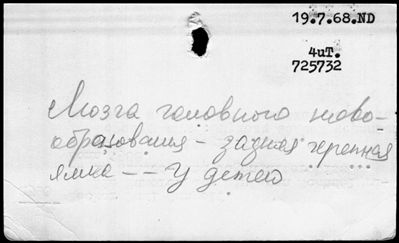 19.7.68.ND
4иТ.
725732
Мозга головного ново-
образования – задняя черепная
ямка –– У детей